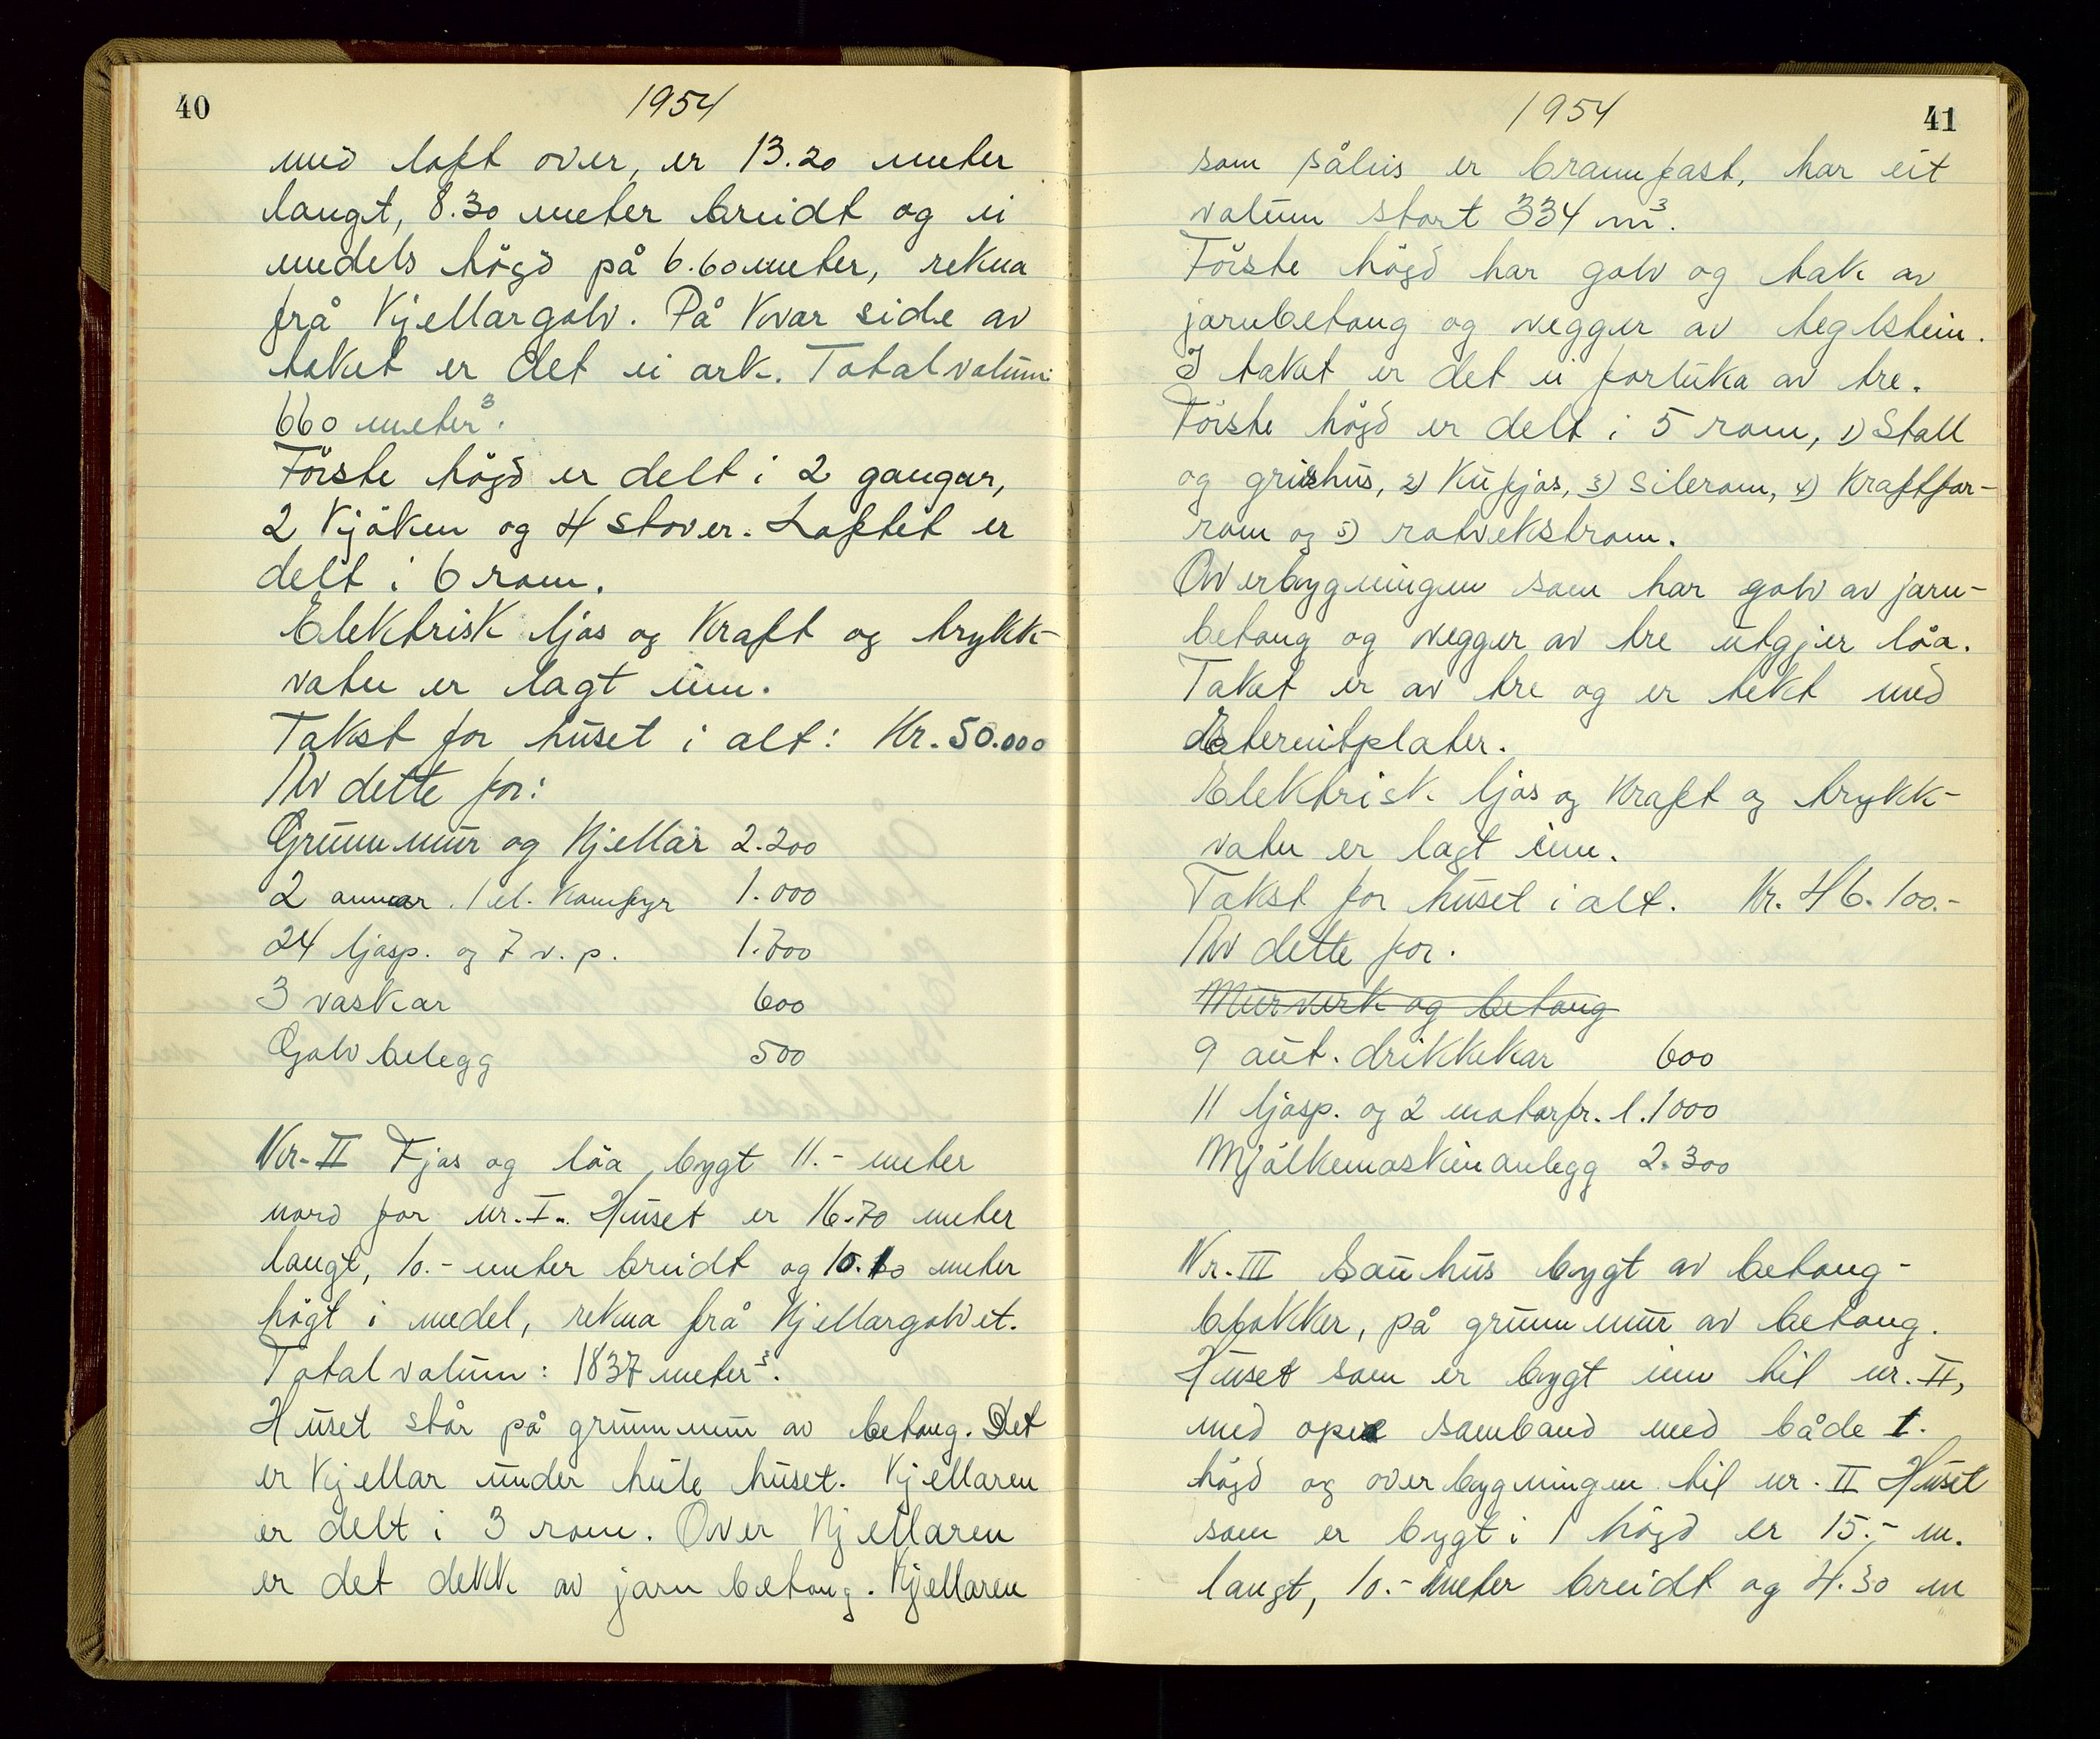 40
1954
med loft over, er 13.20 meter
langt, 8.30 meter breidt og ei
medels högd på 6.60 meter, rekna
frå Kjellargolv. På Kvar side av
taket er det ei ark. Total volum:
660 meter³.
Förste högd er delt i 2 gangar,
2 Kjöken og 4 stover. Loftet er
delt i 6 rom.
Elektrisk ljos og Kraft og trykk-
vatn er lagt inn.
Takst for huset i alt: Kr. 50.000
Av dette for:
Grunnmur og Kjellar 2.200
2 omnar. 1 el. Komfyr 1.000
24 ljosp. og 7 v. p. 1.700
3 vaskar 600
Golvbelegg 500
Nr. II Fjos og löa, bygt 11.- meter
nord for nr. I. Huset er 16.70 meter
langt, 10.- meter breidt og 10. meter
högt i medel, rekna frå Kjellargolvet.
Total volum: 1837 meter³.
Huset står på grunnmur av betong. Det
er Kjellar under heile huset. Kjellaren
er delt i 3 rom. Over Kjellaren
er det dekk av jarn betong. Kjellaren
41
1954
som såleis er brannfast, har eit
volum stort 334 m³.
Förste högd har golv og tak av
jarnbetong og vegger av teglstein.
I taket er det ei forluka av tre.
Förste högd er delt i 5 rom, 1) Stall
og grishus, 2) Kufjos, 3) Silerom, 4) Kraftfor-
rom og 5) rotvekstrom.
Overbygningen som har golv av jarn-
betong og vegger av tre utgjer löa.
Taket er av tre og er tekt med
Eternitplater.
Elektrisk ljos og Kraft og trykk-
vatn er lagt inn.
Takst for huset i alt. Kr. 46.100.-
Av dette for.
Murverk og betong
9 aut. drikkekar 600
11 ljosp. og 2 motorfr. l. 1000
Mjölkemaskinanlegg 2.300
Nr. III Sauhus bygt av betong-
blokker, på grunnmur av betong.
Huset som er bygt inn til nr. II,
med open samband med både 1.
högd og overbygningen til nr. II Huset
som er bygt i 1 högd er 15.- m.
langt, 10.- meter breidt og 4.30 m